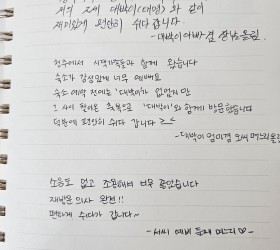 저희 조카 대박이(태명)와 같이
재미있게 편안히 쉬다 갑니다.
- 대박이 아빠 겸 올림
청주에서 시댁가족들과 함께 왔습니다
숙소가 감성있게 너무 예뻐요
숙소 예약 전에는 '대박이'가 없었지만
그 사이 찾아온 축복으로 '대박이'와 함께 방문했습니다
덕분에 편안히 쉬다 갑니다
- 대박이 엄마겸 며느리올림
소음도 없고 조용해서 너무 좋았습니다
재방문의사 완전!!
편하게 쉬다가 갑니다~
- 서씨 예비 둘째 며느리♡ -